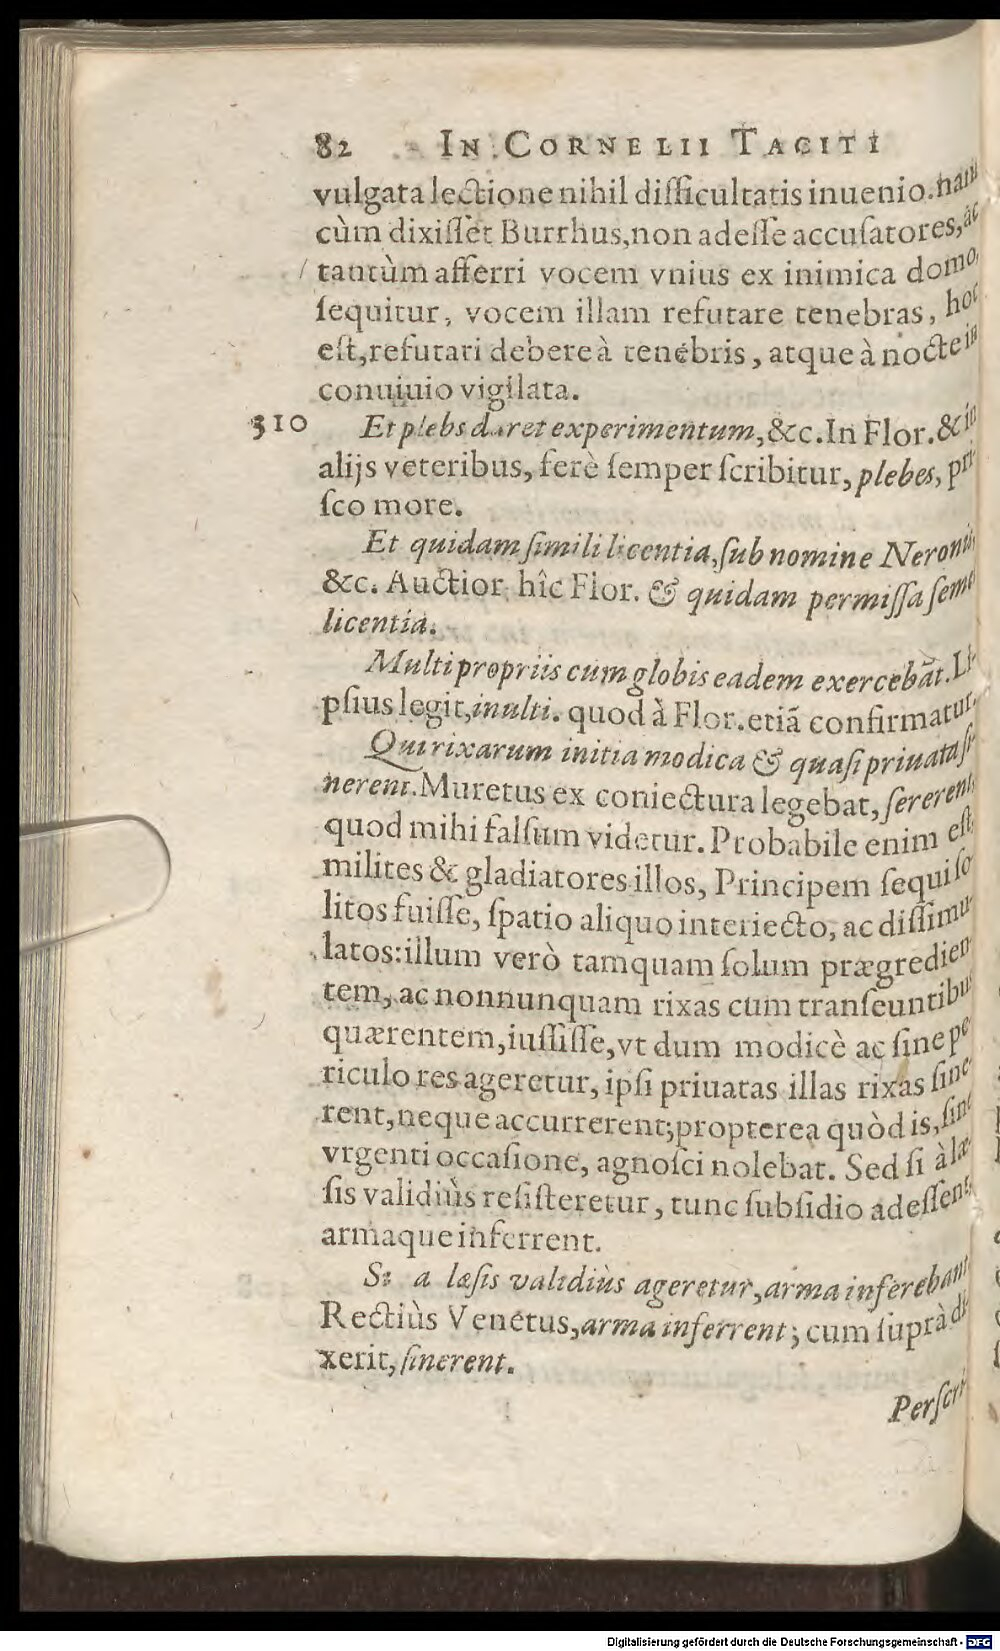 82 IN CORNELII TACITI
vulgata lectione nihil difficultatis inuenio. nam
cùm dixiſſet Burrhus, non adeſſe accuſatores, ac
tantùm afferri vocem vnius ex inimica domo,
ſequitur, vocem illam refutare tenebras, hoc
eſt, refutari debere à tenebris, atque à nocte in
conuiuio vigilata.
310 Et plebs daret experimentum, &c. In Flor. & in
alijs veteribus, ferè ſemper ſcribitur, plebes, pri-
ſco more.
Et quidam ſimili licentia, ſub nomine Neronis,
&c. Auctior hîc Flor. & quidam permiſſa ſeme
licentia.
Multi propriis cum globis eadem exercebāt. Li-
pſius legit, inulti. quod à Flor. etiā confirmatur.
Qui rixarum initia modica & quaſi priuata ſi-
nerent. Muretus ex coniectura legebat, ſererent,
quod mihi falſum videtur. Probabile enim eſt,
milites & gladiatores illos, Principem ſequi ſo-
litos fuiſſe, ſpatio aliquo interiecto, ac diſſimu-
latos: illum verò tamquam ſolum prægredien-
tem, ac nonnunquam rixas cum tranſeuntibus
quærentem, iuſſiſſe, vt dum modicè ac ſine pe-
riculo res ageretur, ipſi priuatas illas rixas ſine-
rent, neque accurrerent; propterea quòd is, ſine
vrgenti occaſione, agnoſci nolebat. Sed ſi à læ-
ſis validiùs reſiſteretur, tunc ſubſidio adeſſent,
armaque inferrent.
Si a læſis validiùs ageretur, arma inferebant
Rectiùs Venetus, arma inferrent; cum ſuprà di-
xerit, ſinerent.
Perſcri-
Digitalisierung gefördert durch die Deutsche Forschungsgemeinschaft - DFG